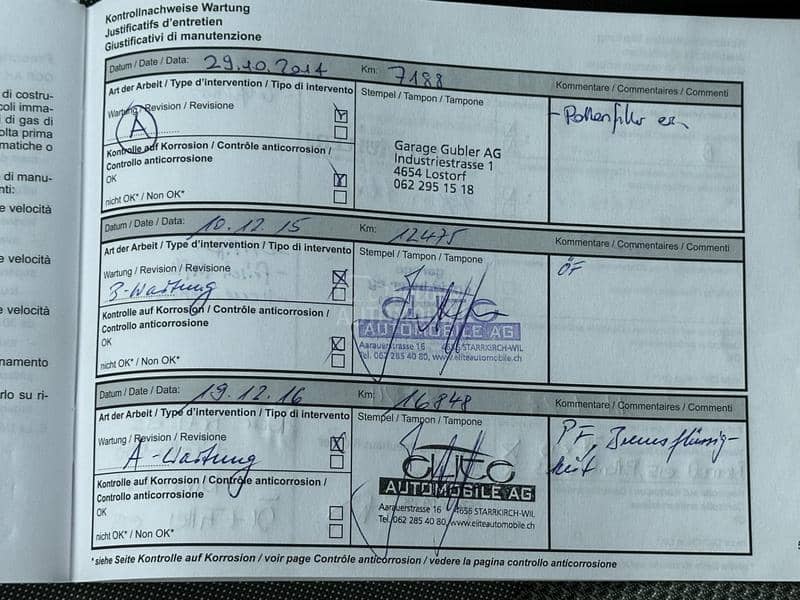 di costru-
coli imma-
di gas di
olta prima
matiche o
di manu-
nti:
e velocità
e velocità
e velocità
namento
rlo su ri-
Kontrollnachweise Wartung
Justificatifs d'entretien
Giustificativi di manutenzione
Datum / Date / Data: 29.10.2014 Km: 7188
Art der Arbeit / Type d'intervention / Tipo di intervento
Stempel / Tampon / Tampone
Kommentare / Commentaires / Commenti
Wartung / Revision / Revisione
A
- Pollenfilter
Kontrolle auf Korrosion / Contrôle anticorrosion /
Controllo anticorrosione
OK
nicht OK* / Non OK*
Garage Gubler AG
Industriestrasse 1
4654 Lostorf
062 295 15 18
Datum / Date / Data: 10.12.15 Km: 12475
Art der Arbeit / Type d'intervention / Tipo di intervento
Stempel / Tampon / Tampone
Kommentare / Commentaires / Commenti
Wartung / Revision / Revisione
B-Wartung
ÖF
Kontrolle auf Korrosion / Contrôle anticorrosion /
Controllo anticorrosione
OK
nicht OK* / Non OK*
elite
AUTOMOBILE AG
Aarauerstrasse 16 4656 STARRKIRCH-WIL
Tel. 062 285 40 80, www.eliteautomobile.ch
Datum / Date / Data: 19.12.16 Km: 16848
Art der Arbeit / Type d'intervention / Tipo di intervento
Stempel / Tampon / Tampone
Kommentare / Commentaires / Commenti
Wartung / Revision / Revisione
A-Wartung
PF, Bremsflüssig-
keit
Kontrolle auf Korrosion / Contrôle anticorrosion /
Controllo anticorrosione
OK
nicht OK* / Non OK*
elite
AUTOMOBILE AG
Aarauerstrasse 16 4656 STARRKIRCH-WIL
Tel. 062 285 40 80, www.eliteautomobile.ch
*siehe Seite Kontrolle auf Korrosion / voir page Contrôle anticorrosion / vedere la pagina controllo anticorrosione